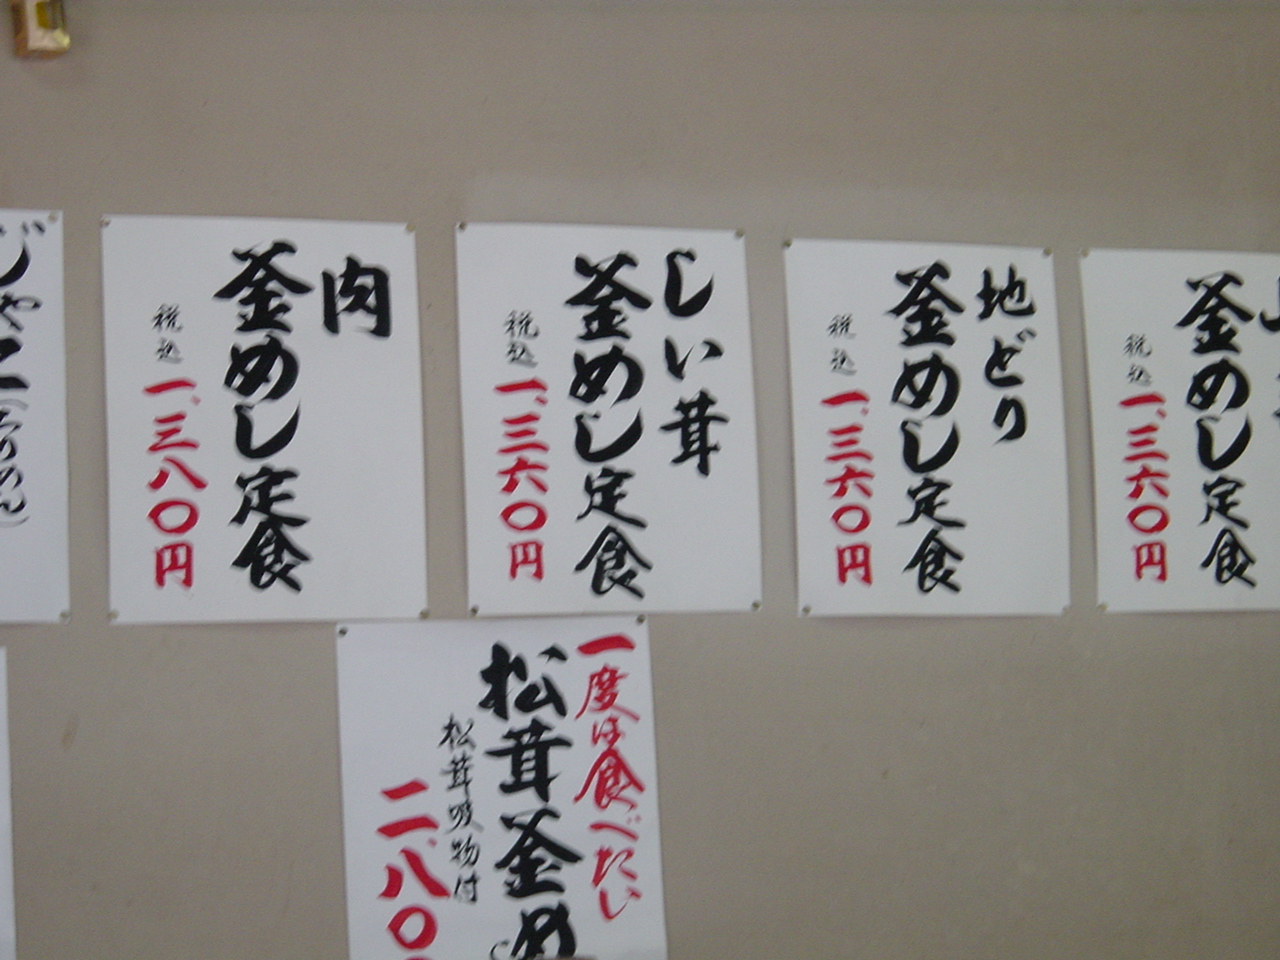 じゃこ(ちりめん)
肉
釜めし定食
税込一、三八〇円
しい茸
釜めし定食
税込一、三六〇円
地どり
釜めし定食
税込一、三六〇円
釜めし定食
税込一、三六〇円
一度は食べたい
松茸釜め
松茸吸物付
二、八〇